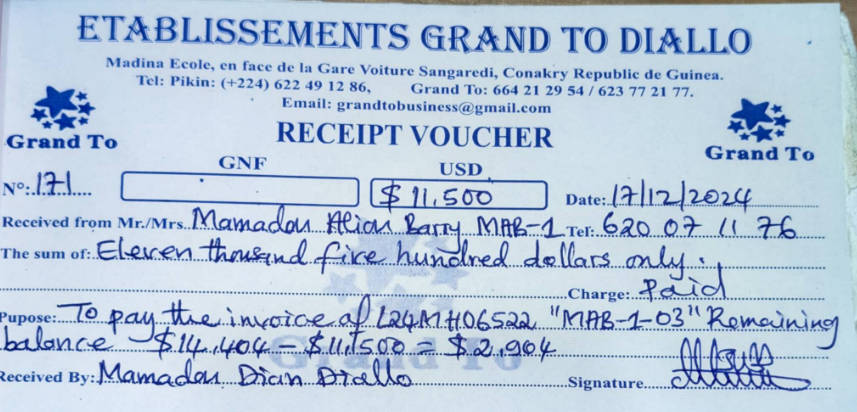 ETABLISSEMENTS GRAND TO DIALLO
Madina Ecole, en face de la Gare Voiture Sangaredi, Conakry Republic de Guinea.
Tel: Pikin: (+224) 622 49 12 86, Grand To: 664 21 29 54 / 623 77 21 77.
Email: grandtobusiness@gmail.com
Grand To
RECEIPT VOUCHER
Grand To
GNF USD
N°: 171 $ 11,500 Date: 17/12/2024
Received from Mr./Mrs. Mamadou Alion Barry MAB-1 Tel: 620 07 11 76
The sum of: Eleven thousand five hundred dollars only.
Charge: Paid
Pupose: To pay the invoice of L24MH06522 "MAB-1-03" Remaining
balance $14,404 - $11,500 = $2,904
Grand To
Received By: Mamadou Dian Diallo Signature